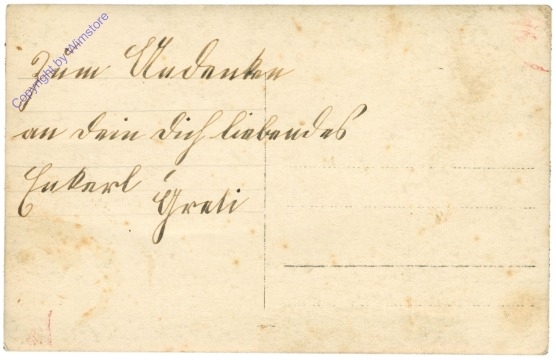 Zum Andenken
an dein dich liebendes
Enkerl
Greti
Copyright by Wimstore